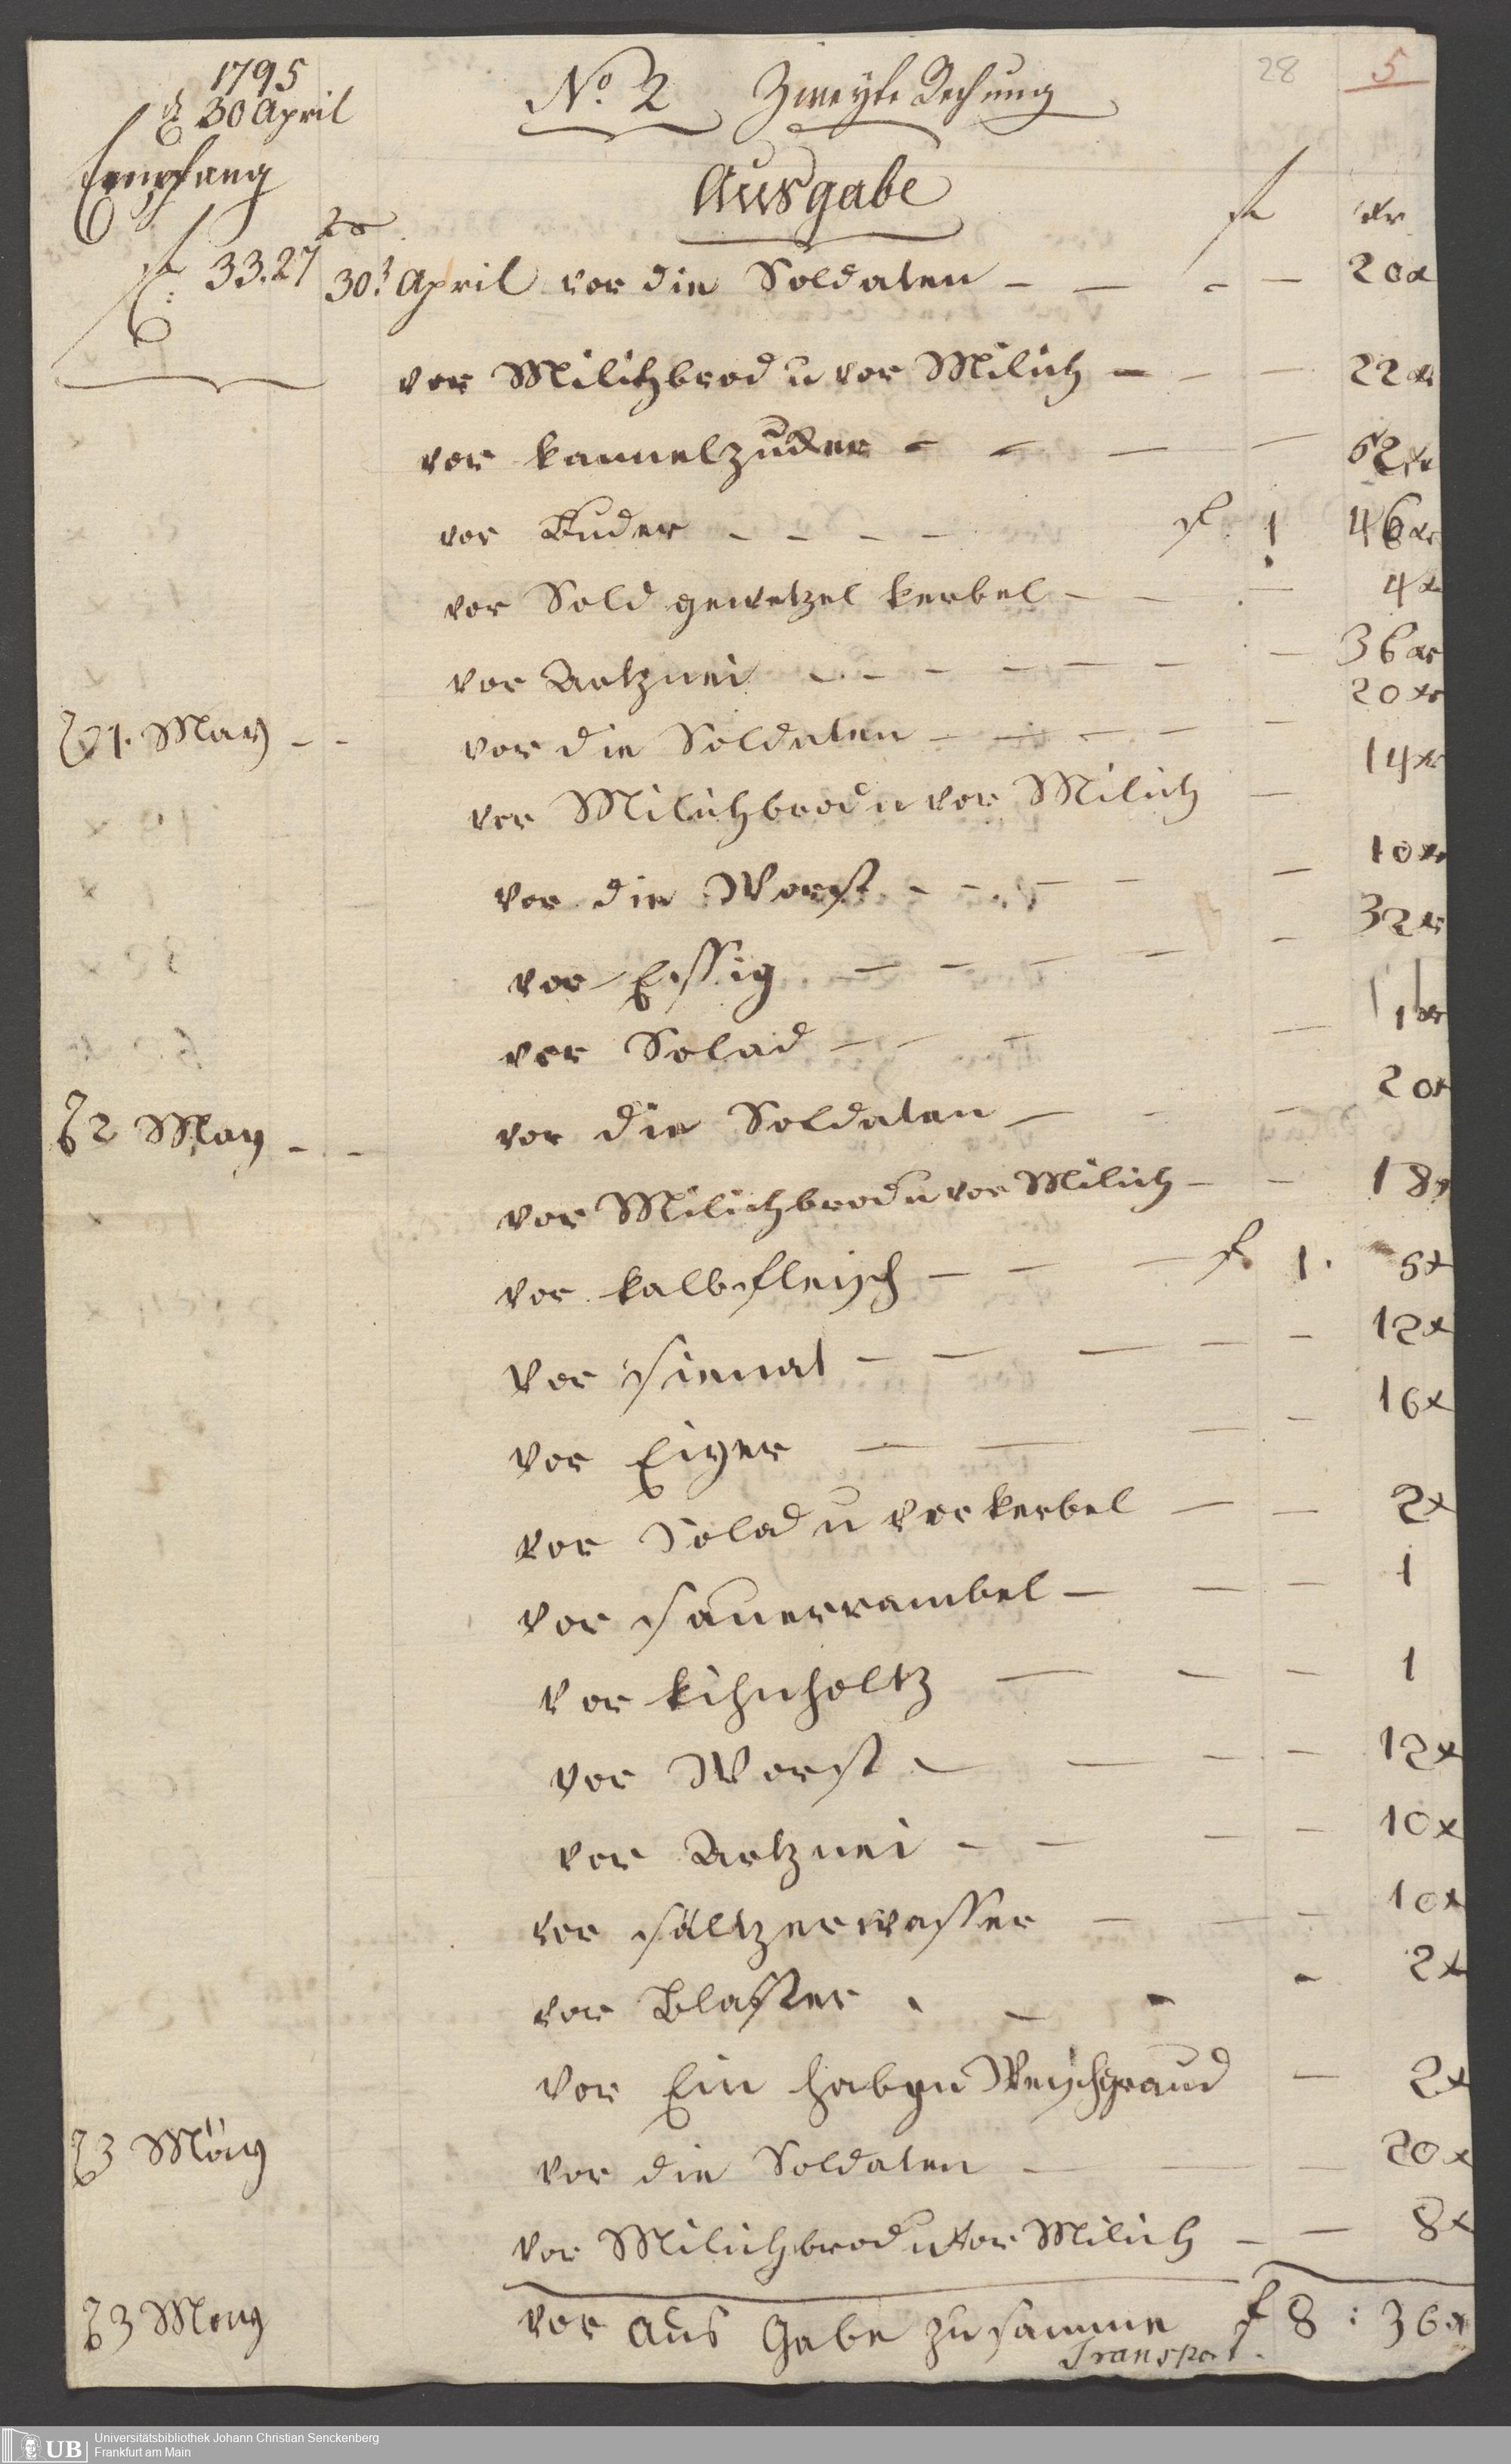 1795
d 30 April
No. 2 Zweyte Rechnung
28
5
Empfang
Ausgabe
f xr
f 33.27 xr
30t April vor die Soldaten - - - - 20x
vor Milichbrod u vor Milich - - - 22xr
vor kannelzucker - - - - 52xr
vor Buder - - - - f. 1 46xr
vor Sold gewetzel kerbel - - - 4x
vor Artznei - - - - - 36xr
d 1. May - - vor die Soldaten - - - - 20xr
vor Milichbrod u vor Milich - 14xr
vor die Worst - - - - 10xr
vor Essig - - - - 32xr
vor Solad - - - - 1xr
d 2 May - - vor die Soldaten - - - 20x
vor Milichbrod u vor Milich - - 18x
vor kalbfleisch - - - f. 1. 6x
vor sienat - - - - 12x
vor Eiyer - - - - 16x
vor Solad u vor kerbel - - 2x
vor sauerrambel - - - 1
vor kihnholtz - - - 1
vor Worst - - - - 12x
vor Artznei - - - - 10x
vor sältzerwasser - - - 10x
vor Blaster - - - - 2x
vor Ein habgn - 2x
d 3 Möy vor die Soldaten - - - 20x
vor Milichbrod u vor Milich - - 8x
d 3 Mey vor aus Gabe zusamme f 8 : 36x
Transport.
UB Universitätsbibliothek Johann Christian Senckenberg
Frankfurt am Main